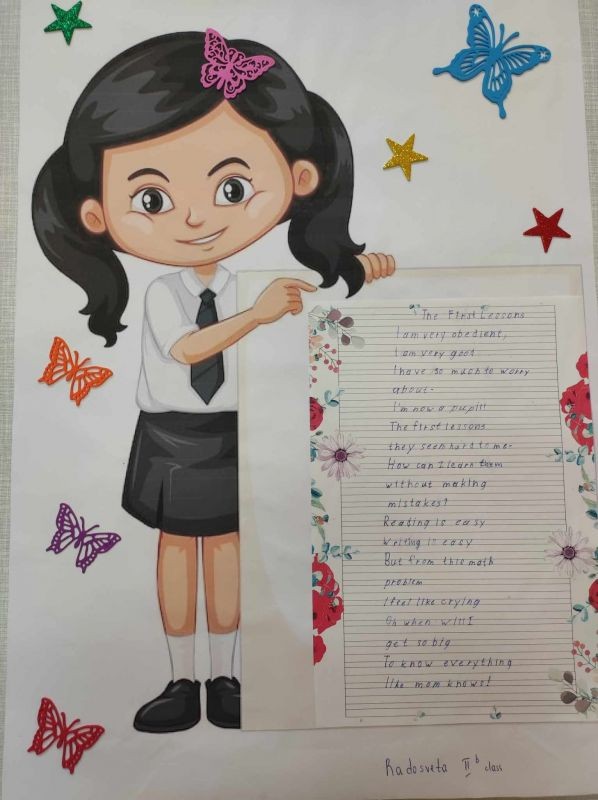 The First Lessons
I am very obedient,
I am very good
I have so much to worry
about-
I'm now a pupil!
The first lessons
they seem hard to me-
How can I learn them
without making
mistakes?
Reading is easy
Writing is easy
But from this math
problem
I feel like crying
Oh when will I
get so big
To know everything
like mom knows!
Radosveta II b class